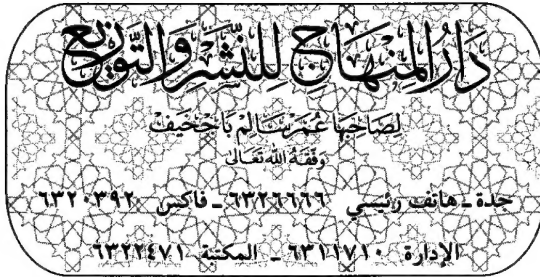 دَارُ المِنْهَاجِ لِلنَّشْرِ وَالتَّوْزِيعِ
لِصَاحِبِهَا عُمَر سَالِم بَاجَخِيف
وَفَّقَهُ اللهُ تَعَالَى
جدة ـ هاتف رئيسي ٦٣٢٦٦٦٦ ـ فاكس ٦٣٢٠٣٩٢
الإدارة ٦٣١١٧١٠ ـ المكتبة ٦٣٢٢٤٧١